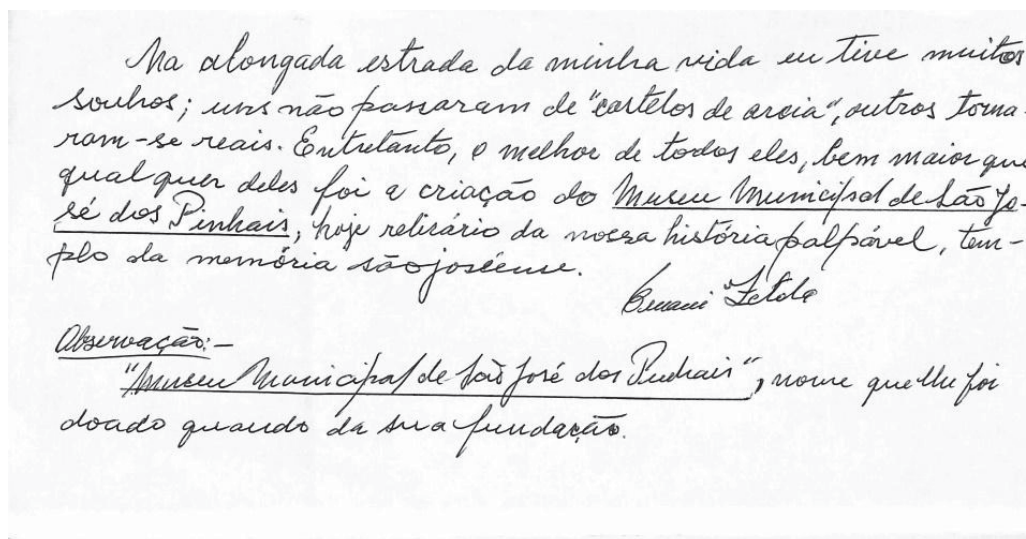 Na alongada estrada da minha vida eu tive muitos
sonhos; uns não passaram de "castelos de areia", outros torna-
ram-se reais. Entretanto, o melhor de todos eles, bem maior que
qualquer deles foi a criação do Museu Municipal de São Jo-
sé dos Pinhais, hoje relicário da nossa história palpável, tem-
plo da memória sãojoséense.
Ernani Zetola
Observação:-
"Museu Municipal de São José dos Pinhais", nome que lhe foi
doado quando da sua fundação.